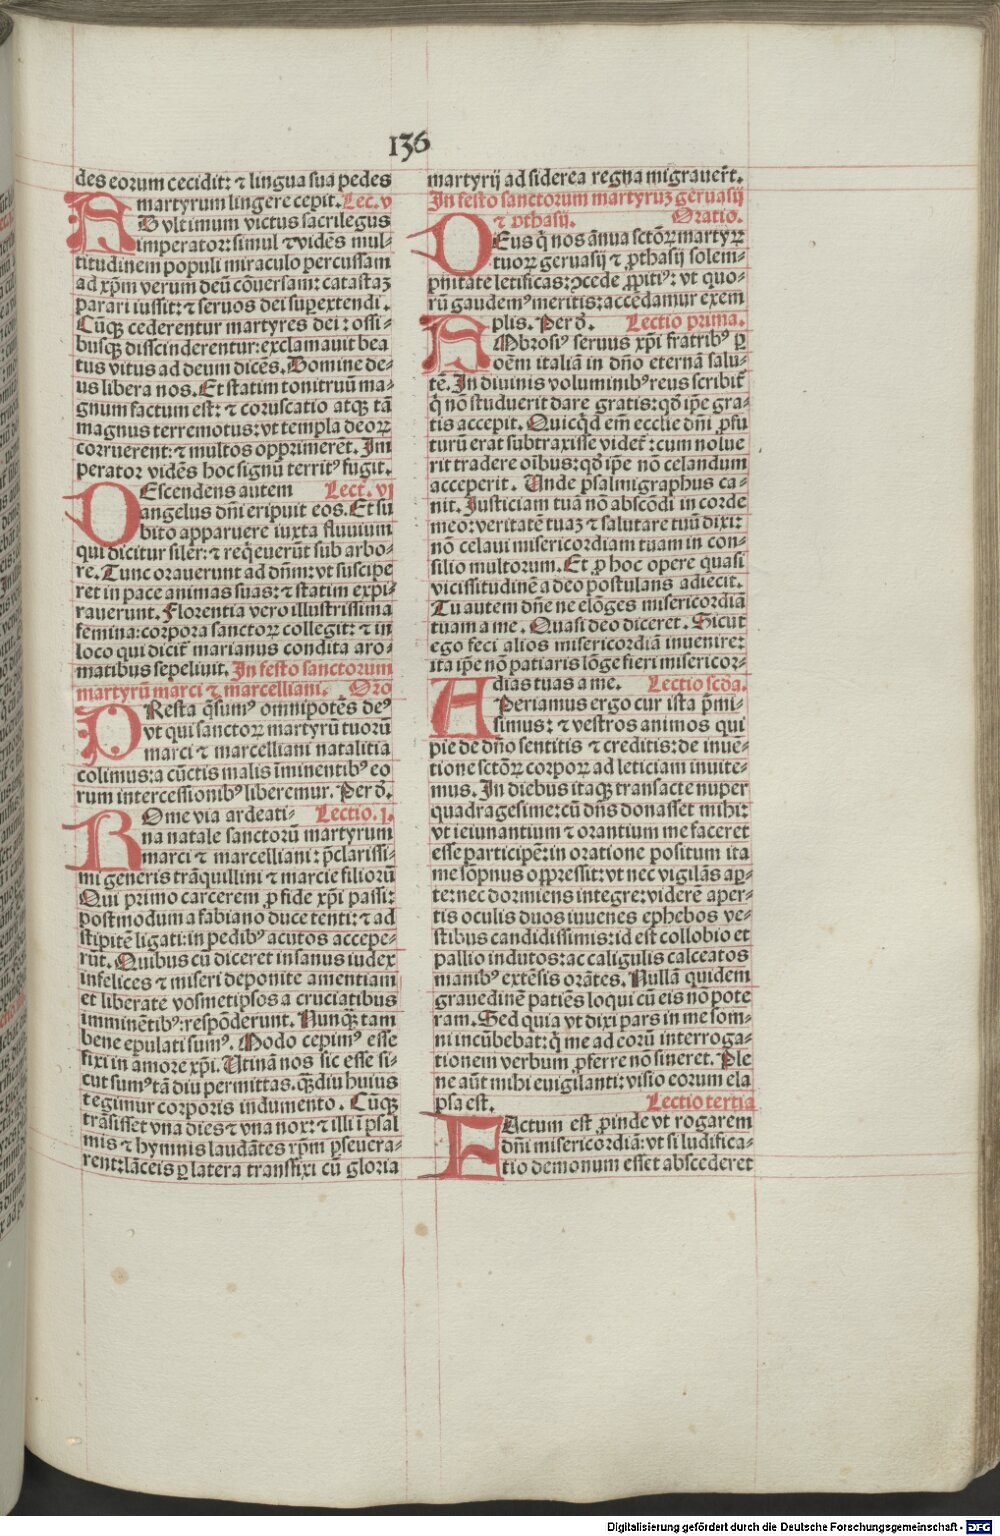 136
des eorum cecidit: ⁊ lingua sua pedes
martyrum lingere cepit. Lec. v
AD vltimum victus sacrilegus
imperator: simul ⁊ vidēs mul-
titudinem populi miraculo percussam
ad xp̄m verum deū cōuersam: catastaꝫ
parari iussit: ⁊ seruos dei suꝑextendi.
Cūqꝫ cederentur martyres dei: ossi-
busqꝫ disscinderentur: exclamauit bea
tus vitus ad deum dicēs. Domine de-
us libera nos. Et statim tonitruū ma-
gnum factum est: ⁊ coruscatio atqꝫ tā
magnus terremotus: vt templa deoꝝ
corruerent: ⁊ multos opprimerēt. Im
perator vidēs hoc signū territꝰ fugit.
DEscendens autem Lect. vj
angelus dn̄i eripuit eos. Et su
bito apparuere iuxta fluuium
qui dicitur siler: ⁊ req̇euerūt sub arbo-
re. Tunc orauerunt ad dn̄m: vt suscipe
ret in pace animas suas: ⁊ statim expi-
rauerunt. Florentia vero illustrissima
femina: corpora sanctoꝝ collegit: ⁊ in
loco qui dicit̄ marianus condita aro-
matibus sepeliuit. In festo sanctorum
martyrū marci ⁊ marcelliani. Oro
PResta q̄sumꝰ omnipotēs deꝰ
vt qui sanctoꝝ martyrū tuorū
marci ⁊ marcelliani natalitia
colimus: a cūctis malis īminentibꝰ eo
rum intercessionibꝰ liberemur. Per d̄.
ROme via ardeati- Lectio. j.
na natale sanctorū martyrum
marci ⁊ marcelliani: p̄clarissi-
mi generis trāquillini ⁊ marcie filiorū
Qui primo carcerem ꝓ fide xp̄i passi:
postmodum a fabiano duce tenti: ⁊ ad
stipitē ligati: in pedibꝰ acutos accepe-
rūt. Quibus cū diceret insanus iudex
infelices ⁊ miseri deponite amentiam
et liberate vosmetipsos a cruciatibus
imminētibꝰ: respōderunt. Nunqꝫ tam
bene epulati sumꝰ. Modo cepimꝰ esse
fixi in amore xp̄i. Utinā nos sic esse si-
cut sumꝰ tā diu permittas. qꝫdiu huius
tegimur corporis indumento. Cūqꝫ
trāsisset vna dies ⁊ vna nox: ⁊ illi ī psal
mis ⁊ hymnis laudātes xp̄m ꝑseuera-
rent: lāceis ꝑ latera transfixi cū gloria
martyrij ad siderea regna migrauer̄t.
In festo sanctorum martyruꝫ geruasij
⁊ ꝓthasij. Oratio.
DEus q̇ nos ānua sctōꝝ martyꝝ
tuoꝝ geruasij ⁊ ꝓthasij solem-
pnitate letificas: ꝯcede ꝓpitiꝰ: vt quo-
rū gaudemꝰ meritis: accēdamur exem
plis. Per d̄. Lectio prima.
AMbrosiꝰ seruus xp̄i fratribꝰ ꝑ
oēm italiā in dn̄o eternā salu-
tē. In diuinis voluminibꝰ reus scribit̄
q̇ nō studuerit dare gratis: qd̄ ip̄e gra-
tis accepit. Quicq̇d em̄ ecclie dn̄i ꝓfu
turū erat subtraxisse videt̄: cum nolue
rit tradere oībus: qd̄ ip̄e nō celandum
acceperit. Unde psalmigraphus ca-
nit. Justiciam tuā nō abscōdi in corde
meo: veritatē tuaꝫ ⁊ salutare tuū dixi:
nō celaui misericordiam tuam in con-
silio multorum. Et ꝓ hoc opere quasi
vicissitudinē a deo postulans adiecit.
Tu autem dn̄e ne elōges misericordiā
tuam a me. Quasi deo diceret. Sicut
ego feci alios misericordiā inuenire:
ita ip̄e nō patiaris lōge fieri misericor-
dias tuas a me. Lectio scd̄a.
APeriamus ergo cur ista p̄mi-
simus: ⁊ vestros animos qui
pie de dn̄o sentitis ⁊ creditis: de inuē-
tione sctōꝝ corpoꝝ ad leticiam inuite-
mus. In diebus itaqꝫ transacte nuper
quadragesime: cū dn̄s donasset mihi:
vt ieiunantium ⁊ orantium me faceret
esse participē: in oratione positum ita
me sopnus oppressit: vt nec vigilās aꝑ-
te: nec dormiens integre: viderē aper-
tis oculis duos iuuenes ephebos ve-
stibus candidissimis: id est collobio et
pallio indutos: ac caligulis calceatos
manibꝰ extēsis orātes. Nullā quidem
grauedinē patiēs loqui cū eis nō pote
ram. Sed quia vt dixi pars in me som-
ni incūbebat: q̇ me ad corū interroga-
tionem verbum ꝓferre nō sineret. Ple
ne aūt mihi euigilanti: visio eorum ela
psa est. Lectio tertia
FActum est ꝓinde vt rogarem
dn̄i misericordiā: vt si ludifica-
tio demonum esset abscederet
Digitalisierung gefördert durch die Deutsche Forschungsgemeinschaft - DFG